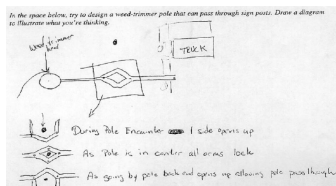 In the space below, try to design a weed-trimmer pole that can pass through sign posts. Draw a diagram
to illustrate what you're thinking.
weed-trimmer
head
TRUCK
During Pole Encounter 1 side opens up
As Pole is in center all arms lock
As going by pole back end opens up allowing pole pass through